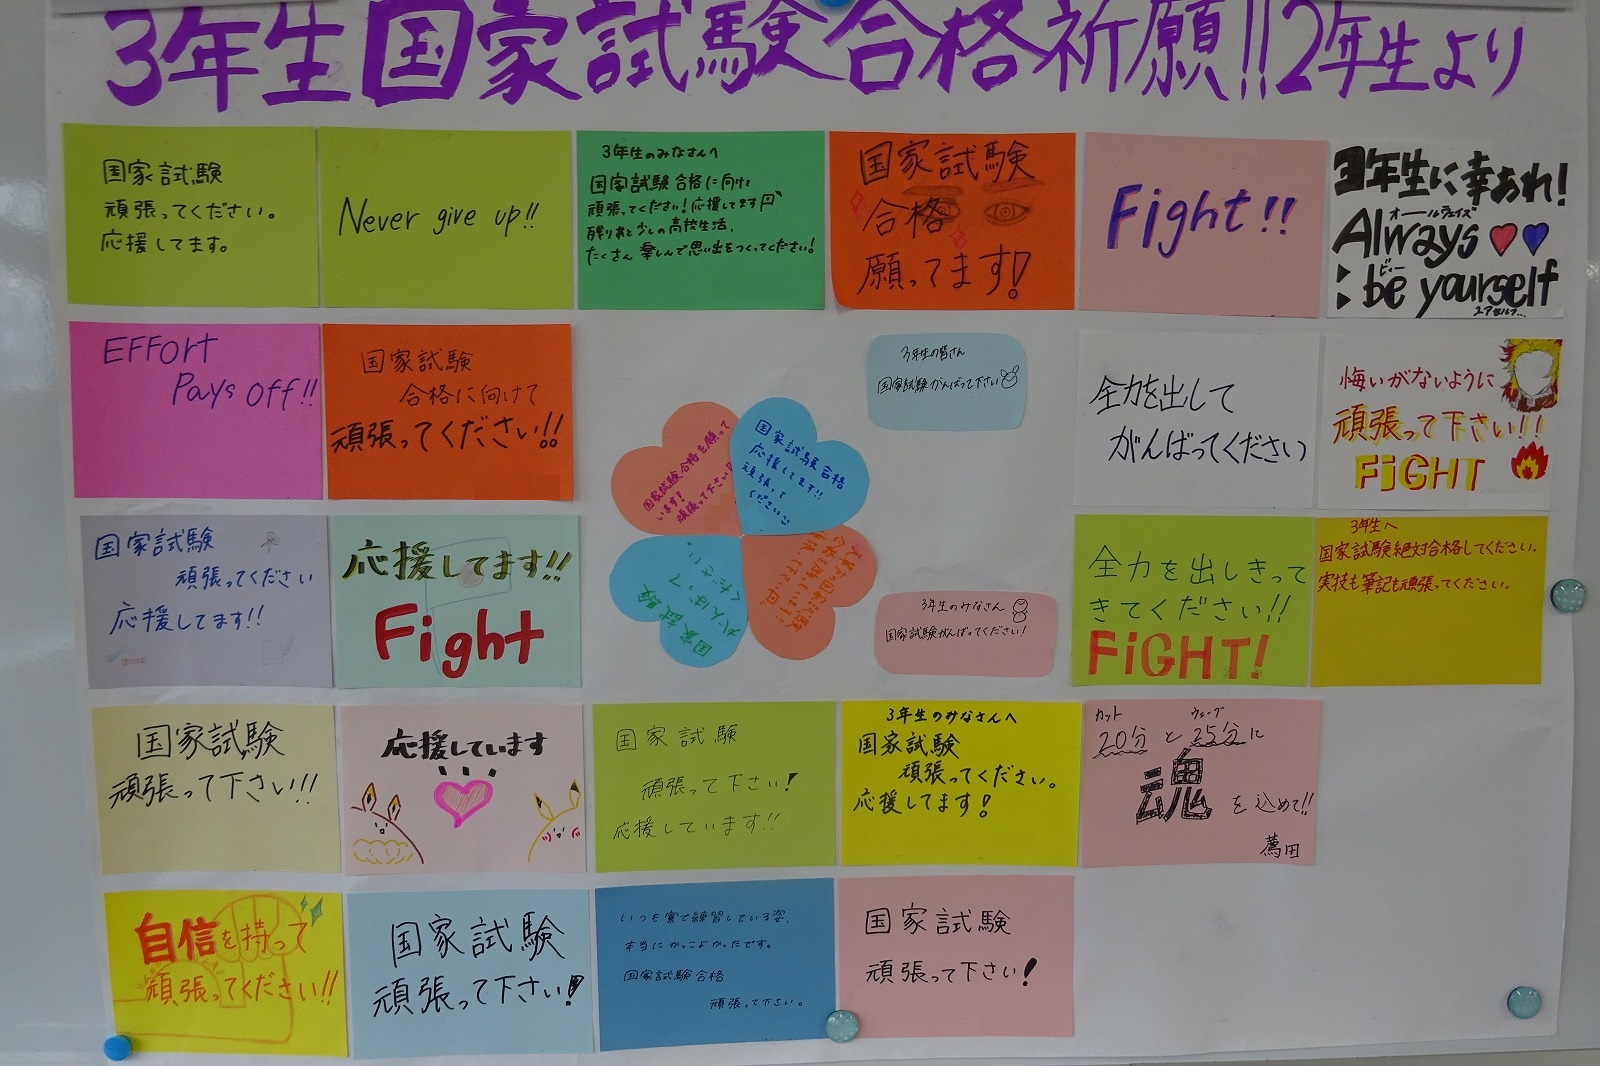 3年生国家試験合格祈願!!2年生より
国家試験
頑張ってください。
応援してます。
Never give up!!
3年生のみなさんへ
国家試験合格に向けて
頑張ってください!応援してます
残りあと少しの高校生活、
たくさん楽しんで思い出をつくってください!
国家試験
合格
願ってます!
Fight!!
3年生に幸あれ!
オールウェイズ
Always
ビー
be yourself
ユアセルフ...
EFFort
Pays off!!
国家試験
合格に向けて
頑張ってください!!
3年生の皆さん
国家試験がんばって下さい
全力を出して
がんばってください
悔いがないように
頑張って下さい!!
FiGHT
国家試験合格を願って
います!
頑張って下さい!
国家試験合格
応援してます!!
頑張って
ください
国家試験
がんばって
ください
国家試験
頑張ってください
応援してます!!
応援してます!!
Fight
3年生のみなさん
国家試験がんばってください!
全力を出しきって
きてください!!
FiGHT!
3年生へ
国家試験絶対合格してください。
実技も筆記も頑張ってください。
国家試験
頑張って下さい!!
応援しています
国家試験
頑張って下さい!
応援しています!!
3年生のみなさんへ
国家試験
頑張ってください。
応援してます!
カット ウェーブ
20分と25分に
魂を込めて!!
薦田
自信を持って
頑張ってください!!
国家試験
頑張って下さい!
いつも寮で練習している姿、
本当にかっこよかったです。
国家試験合格
頑張って下さい。
国家試験
頑張って下さい!